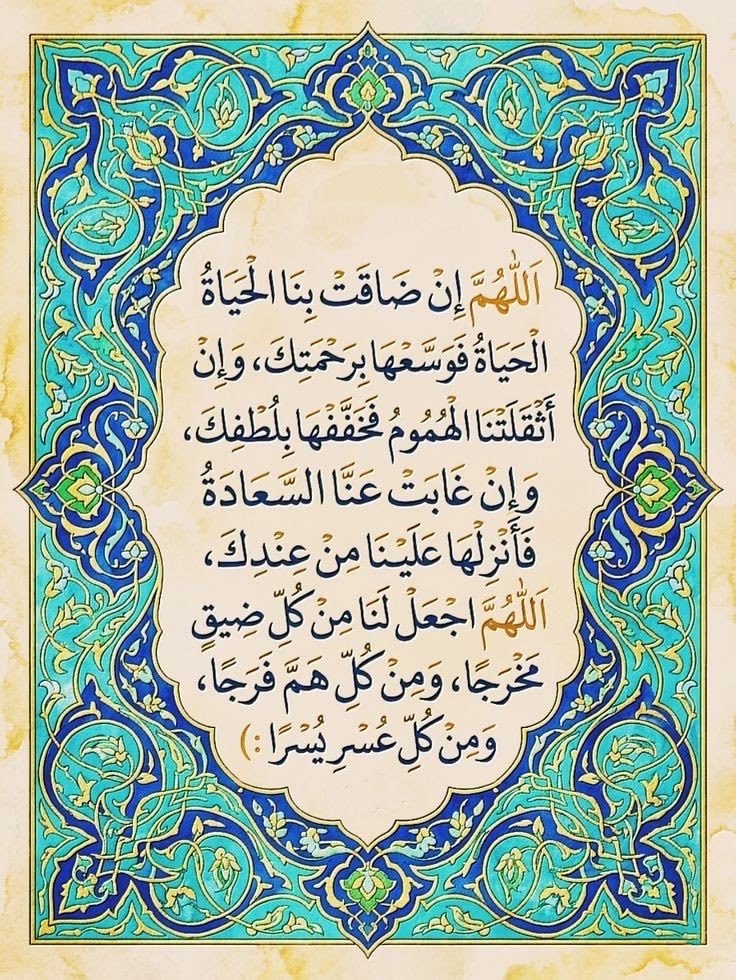 اَللّٰهُمَّ إِنْ ضَاقَتْ بِنَا الْحَيَاةُ
الْحَيَاةُ فَوَسَّعْهَا بِرَحْمَتِكَ، وَإِنْ
أَثْقَلَتْنَا الْهُمُومُ فَخَفَّفْهَا بِلُطْفِكَ،
وَإِنْ غَابَتْ عَنَّا السَّعَادَةُ
فَأَنْزِلْهَا عَلَيْنَا مِنْ عِنْدِكَ،
اَللّٰهُمَّ اجْعَلْ لَنَا مِنْ كُلِّ ضِيقٍ
مَخْرَجًا، وَمِنْ كُلِّ هَمَّ فَرَجًا،
وَمِنْ كُلِّ عُسْرٍ يُسْرًا :)